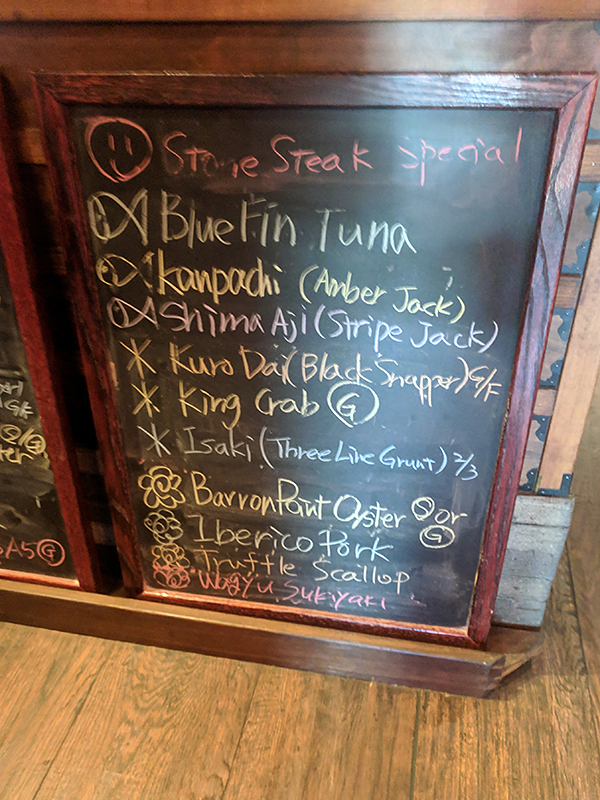 Stone Steak Special
BlueFin Tuna
Kanpachi (Amber Jack)
Shima Aji (Stripe Jack)
Kuro Dai (Black Snapper) G/F
King Crab G
Isaki (Three Line Grunt) 2/3
Barron Point Oyster or
G
Iberico Pork
Truffle Scallop
Wagyu Sukiyaki
A5 G